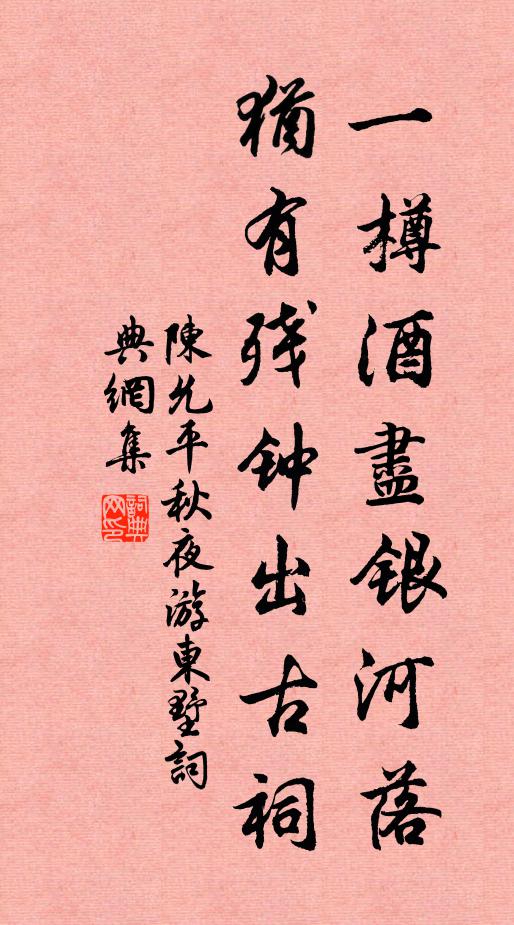 一樽酒盡銀河落
猶有残钟出古祠
陳允平秋夜游東墅詞
典網集
詞典网印